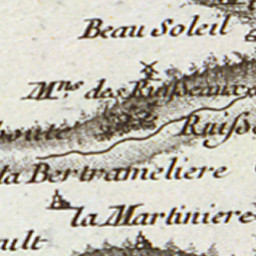 Beau Soleil
Mns. des Ruisseaux
Ruisse
la Bertrameliere
la Martiniere
ult